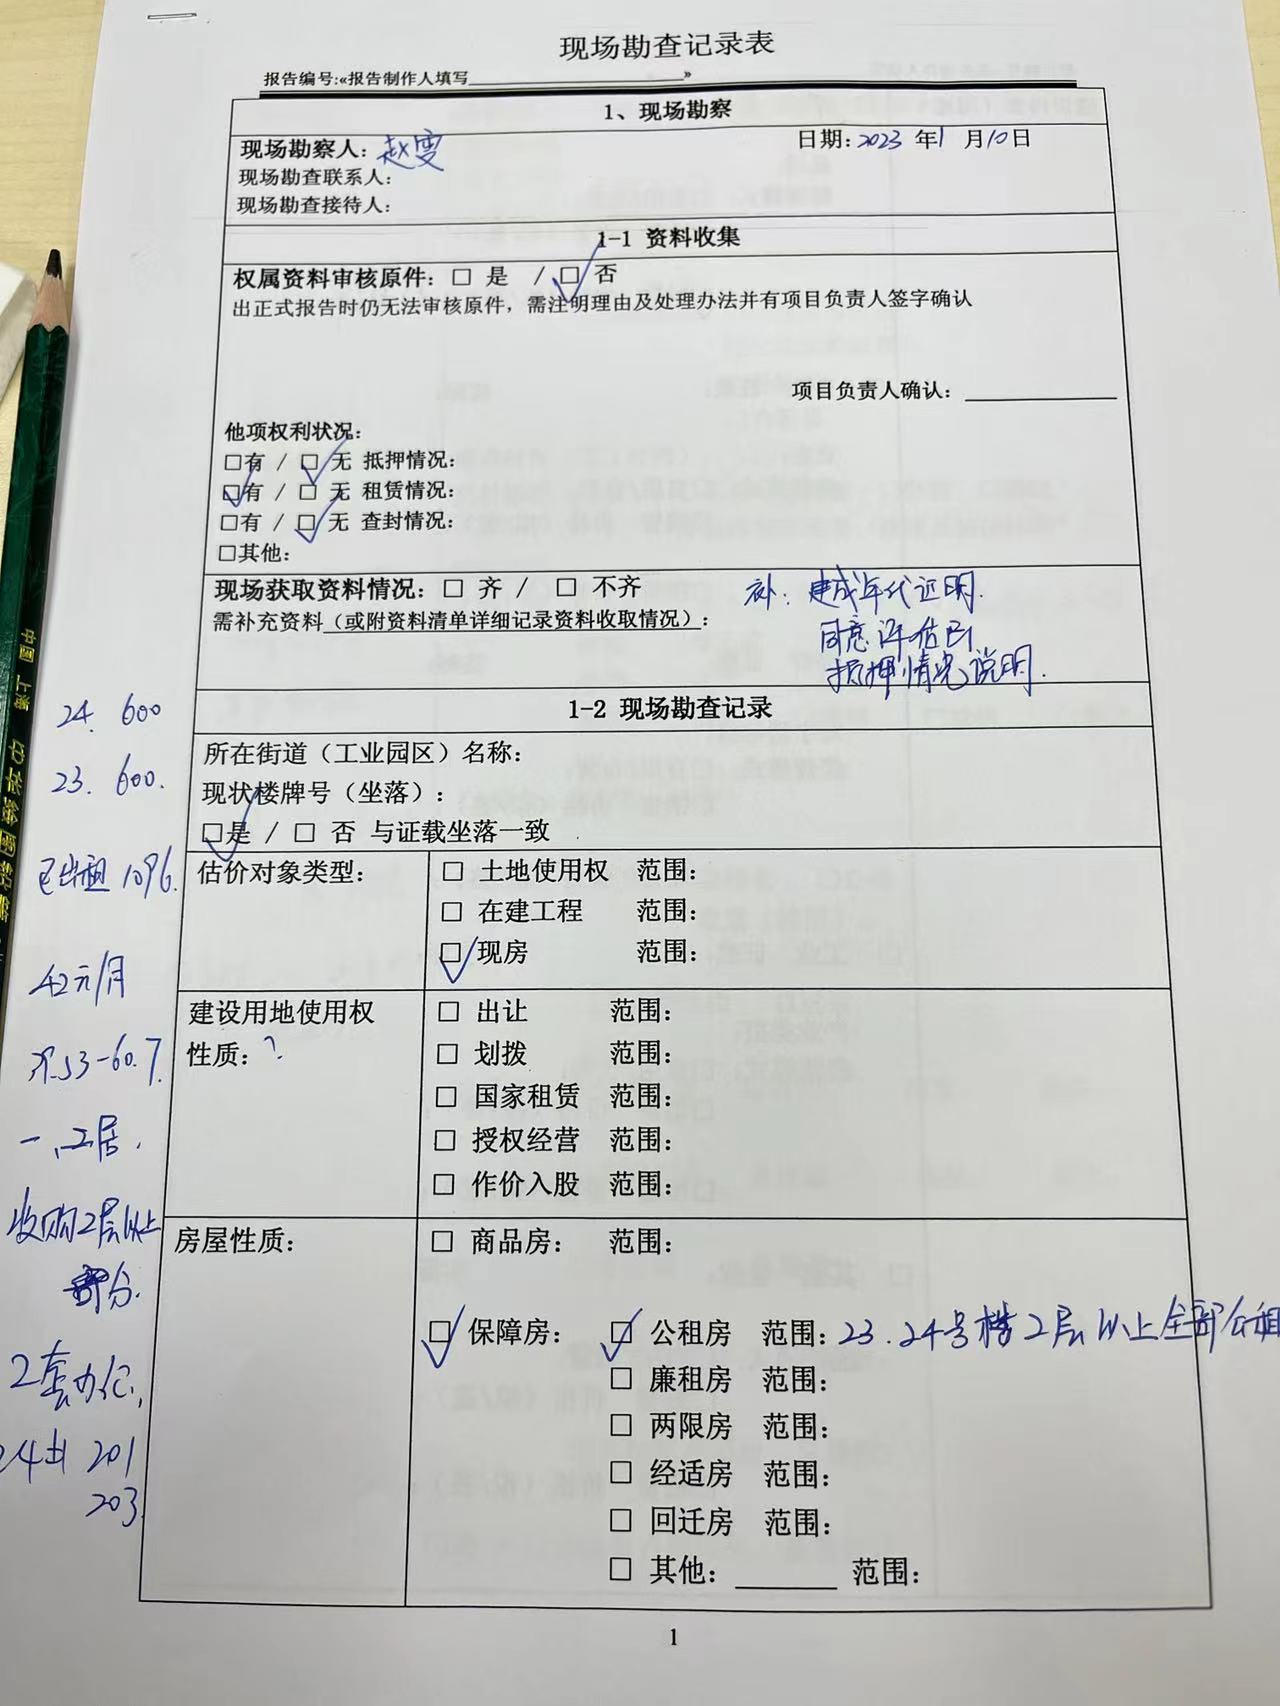 现场勘查记录表
报告编号:«报告制作人填写»
1、现场勘察
现场勘察人：赵雯
日期：2023 年 1 月 10 日
现场勘查联系人：
现场勘查接待人：
1-1 资料收集
权属资料审核原件：□ 是 / □ 否
出正式报告时仍无法审核原件，需注明理由及处理办法并有项目负责人签字确认
项目负责人确认：
他项权利状况：
□有 / □ 无 抵押情况：
□有 / □ 无 租赁情况：
□有 / □ 无 查封情况：
□其他：
现场获取资料情况：□ 齐 / □ 不齐
需补充资料（或附资料清单详细记录资料收取情况）：
补：建成年代证明.
同意评估
抵押情况说明.
1-2 现场勘查记录
所在街道（工业园区）名称：
现状楼牌号（坐落）：
□是 / □ 否 与证载坐落一致
估价对象类型：
□ 土地使用权 范围：
□ 在建工程 范围：
□ 现房 范围：
建设用地使用权
性质：?
□ 出让 范围：
□ 划拨 范围：
□ 国家租赁 范围：
□ 授权经营 范围：
□ 作价入股 范围：
房屋性质：
□ 商品房： 范围：
□ 保障房： □ 公租房 范围：23.24号楼2层以上全部公租
□ 廉租房 范围：
□ 两限房 范围：
□ 经适房 范围：
□ 回迁房 范围：
□ 其他： 范围：
24. 600
23. 600.
已出租 1096.
42元/月
53-60.7.
一、二居.
收购2层以上
部分.
2套办公,
201
203.
1
中国 上海